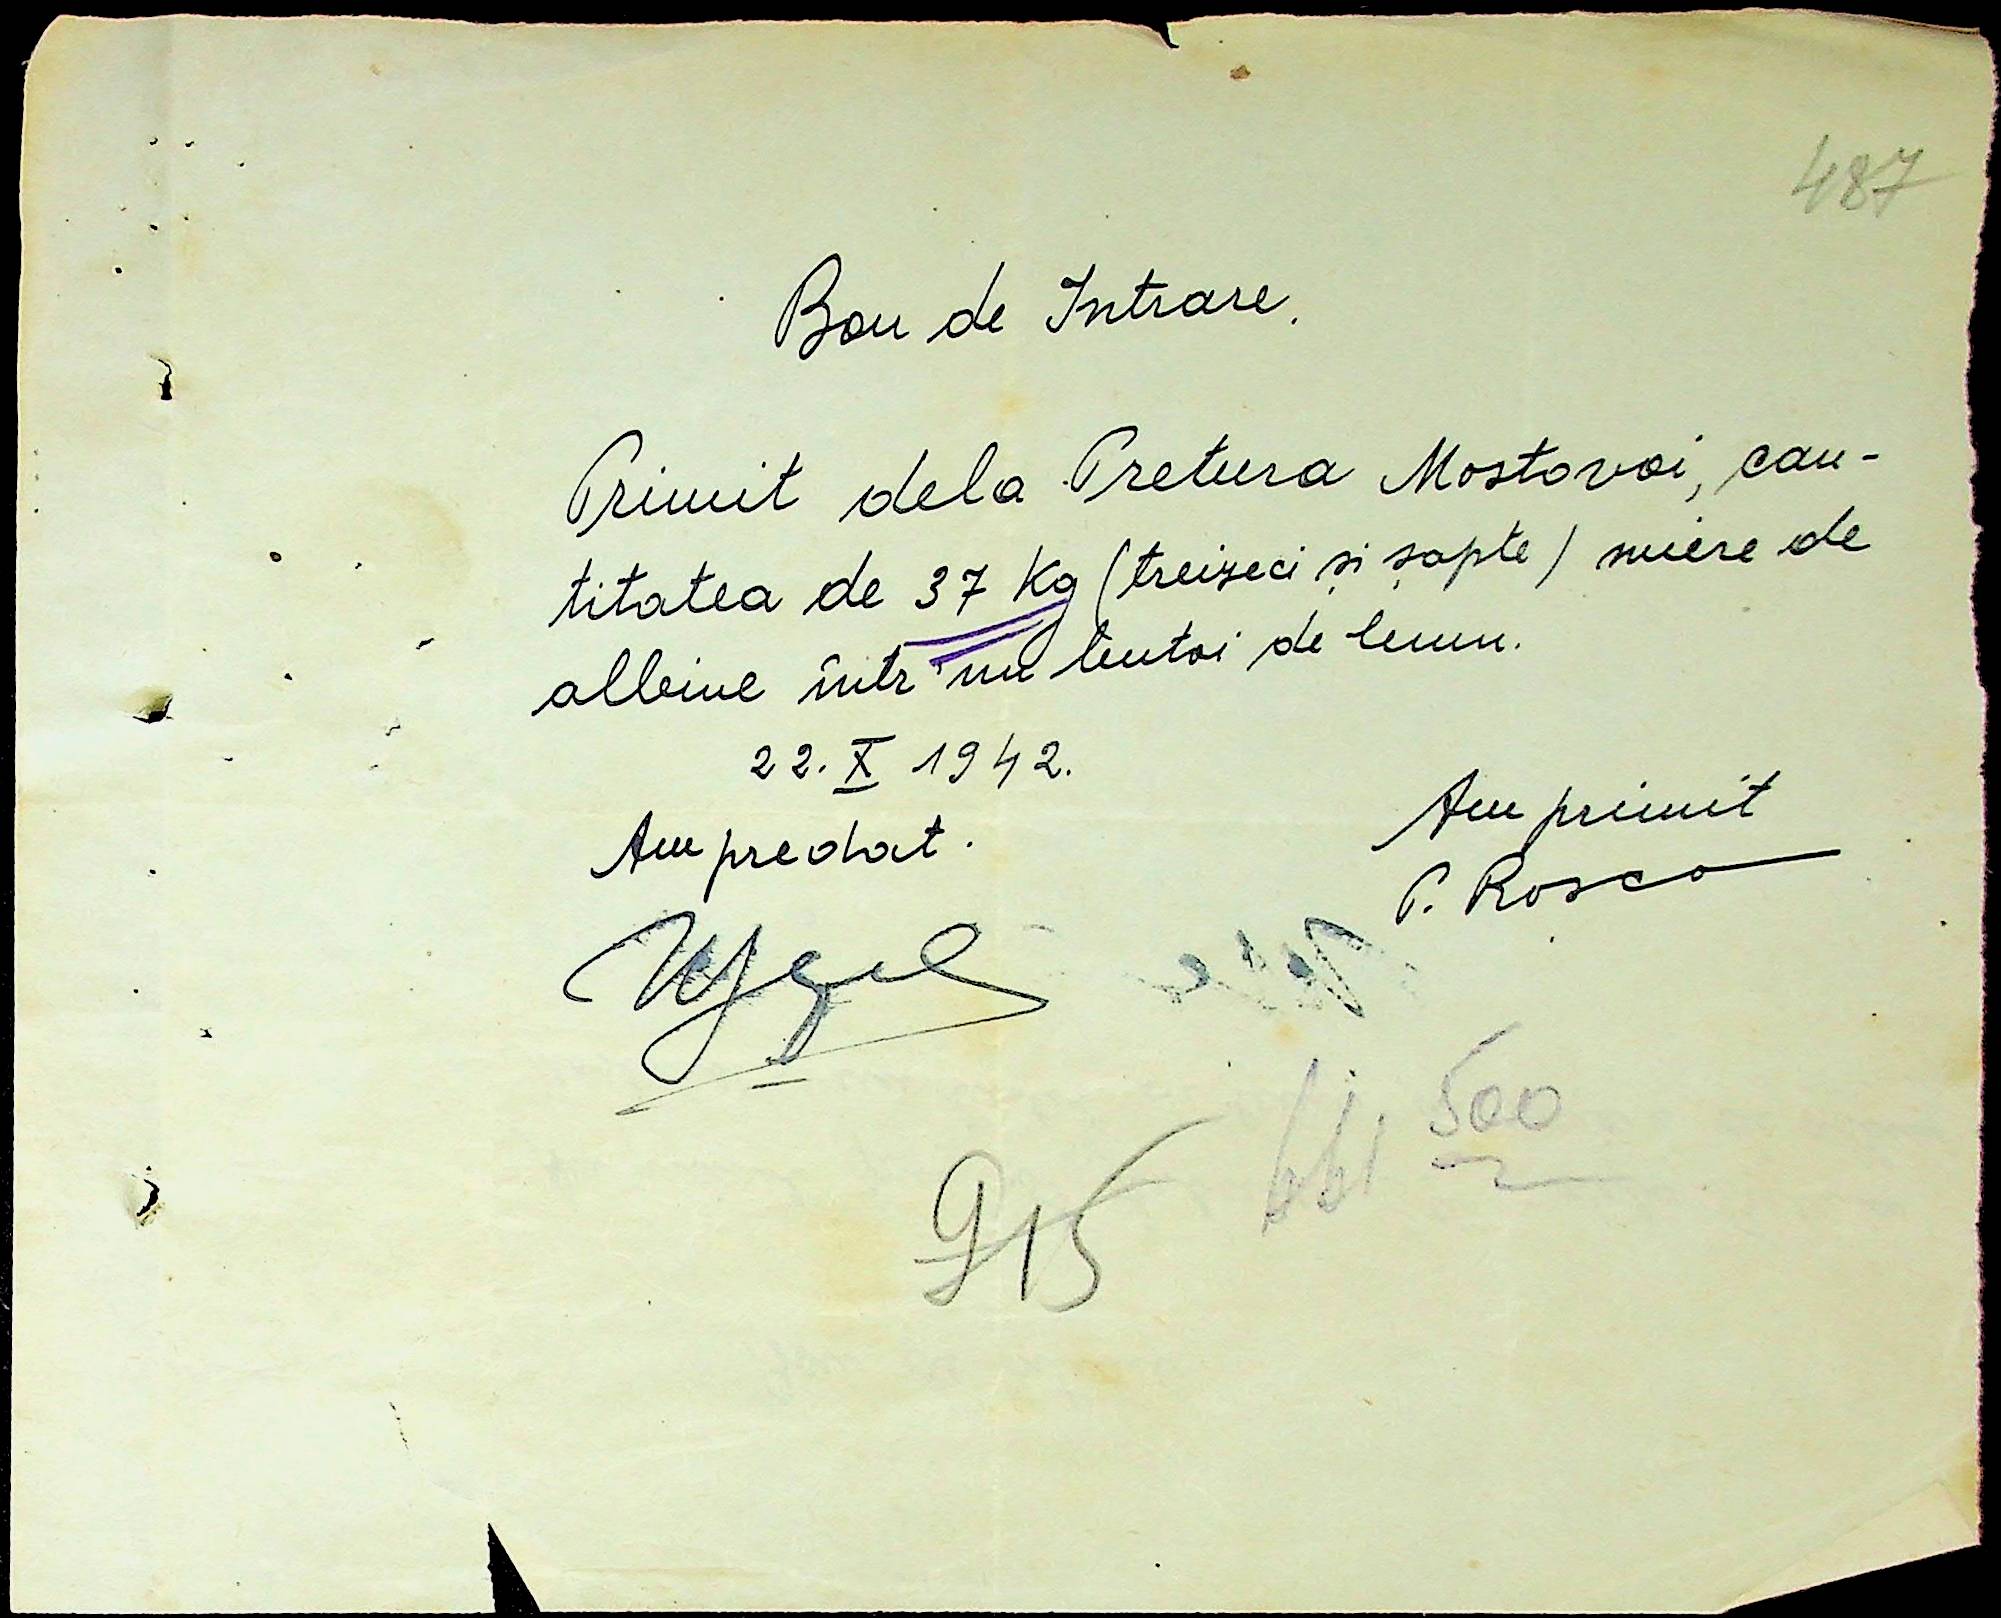 487
Bon de Intrare.
Primit dela Pretura Mostovoi, can-
titatea de 37 Kg (treizeci și șapte) miere de
albine într'un butoi de lemn.
22. X 1942.
Am predat.
Am primit
P. Rosca
500
915